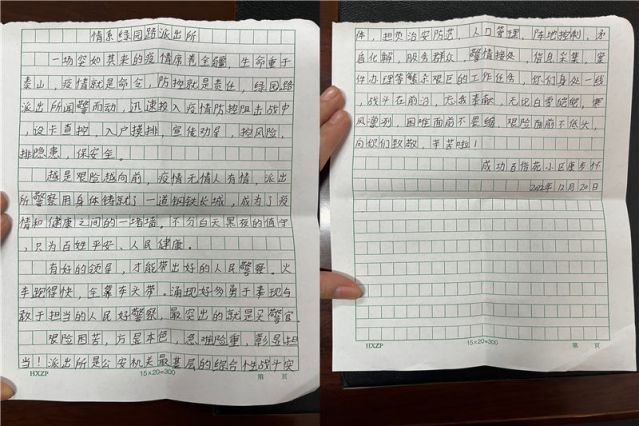 情系绿园路派出所
一场突如其来的疫情席卷全疆，生命重于
泰山，疫情就是命令，防控就是责任，绿园路
派出所闻警而动，迅速投入疫情防控阻击战中
，设卡查控，入户摸排，宣传劝导，控风险，
排隐患，保安全。
越是艰险越向前，疫情无情人有情，派出
所警察用身体铸就了一道钢铁长城，成为了疫
情和健康之间的一堵墙。不分白天黑夜的值守
，只为百姓平安、人民健康。
有好的领导，才能带出好的人民警察。火
车跑得快，全靠车头带。涌现好多勇于表现与
敢于担当的人民好警察，最突出的就是 警官
艰险困苦，方显本色，危难险重，彰显担
当！派出所是公安机关最基层的综合性战斗实
HXZP
15×20=300
第 页
体，担负治安防范，人口管理，阵地控制，
化解，服务群众，警情接处，信息采集，案
件办理等繁杂艰巨的工作任务，你们身处一线
，战斗在前沿，无我奉献，无论白雪皑皑，寒
风凛冽，困难面前不畏缩，艰险面前不低头，
向 们致敬，辛苦啦！
成功百信花小区
2022年12月20日
HXZP
15×20=300
第 页